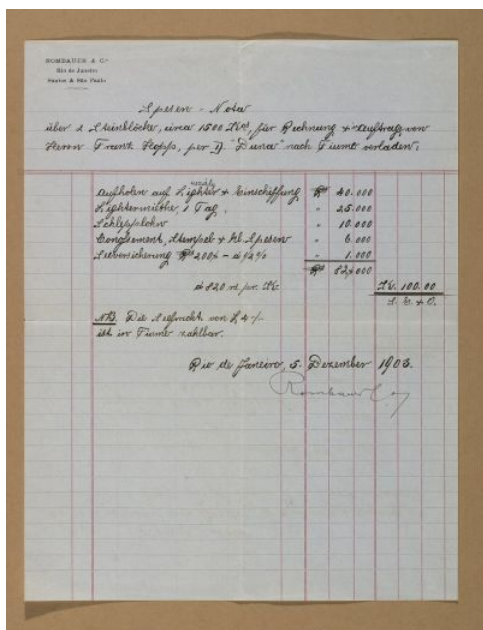 ROMBAUER & Cº
Rio de Janeiro
Santos & São Paulo
Spesen-Nota
über 2 Steinblöcke, circa 1500 Kos, für Rechnung & Auftrag von
Herrn Franz per D. "Duna" nach Fiume verladen:
Aufholen auf Lighter & Einschiffung Rs 40.000
Lightermiethe, 1 Tag, " 25.000
Schlepplohn " 10.000
Conossement, Stempel & kl. Spesen " 6.000
Seeversicherung Rs 200 - à ½% " 1.000
Rs 82.000
à 820 rs pr. Kr. Kr. 100.00
S. E. & O.
NB. Die Seefracht von £ 4 -/-
ist in Fiume zahlbar.
Rio de Janeiro, 5. Dezember 1903.
Rombauer & Co